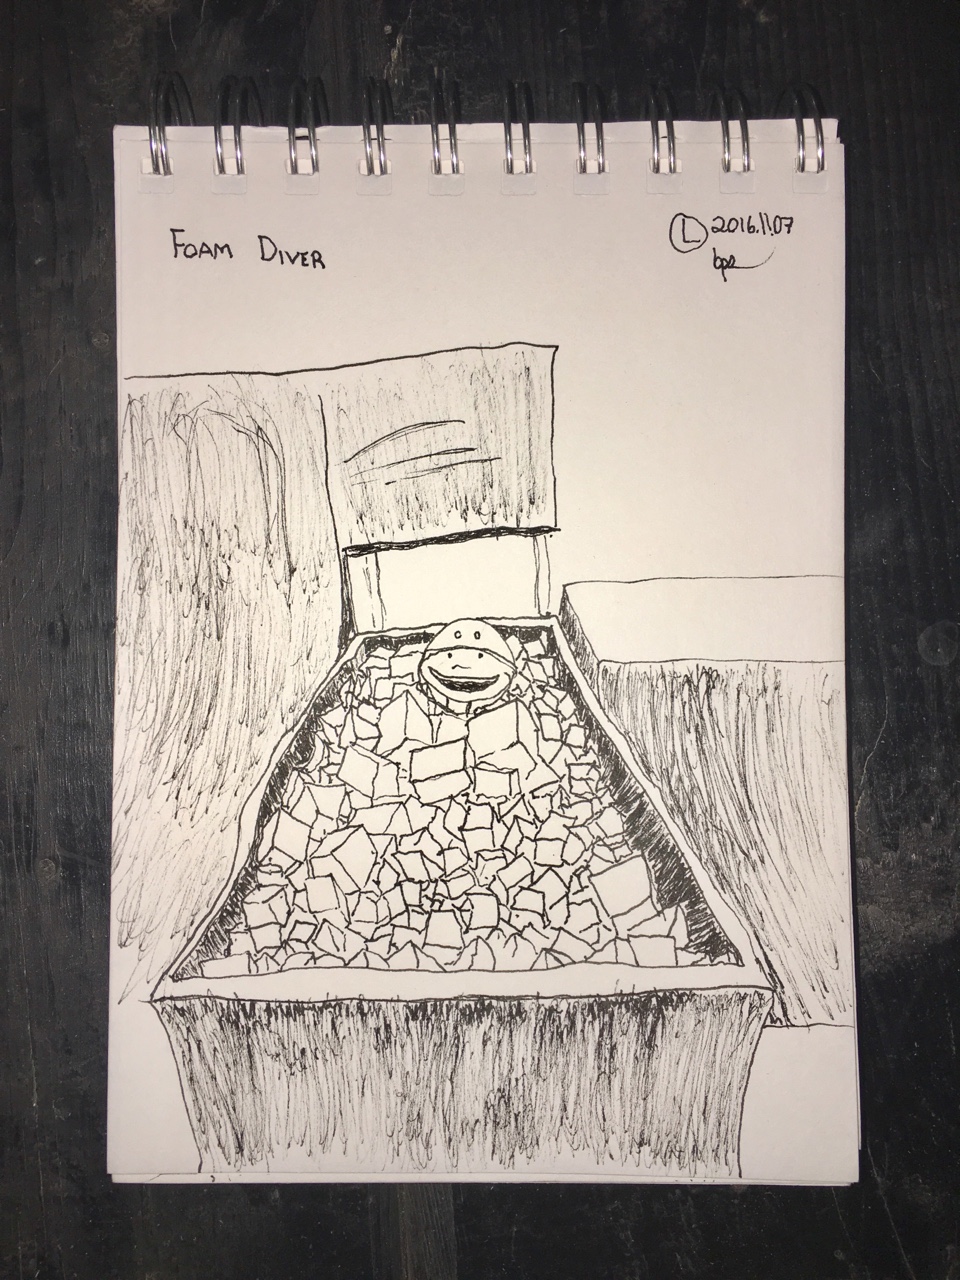 FOAM DIVER
L 2016.11.07